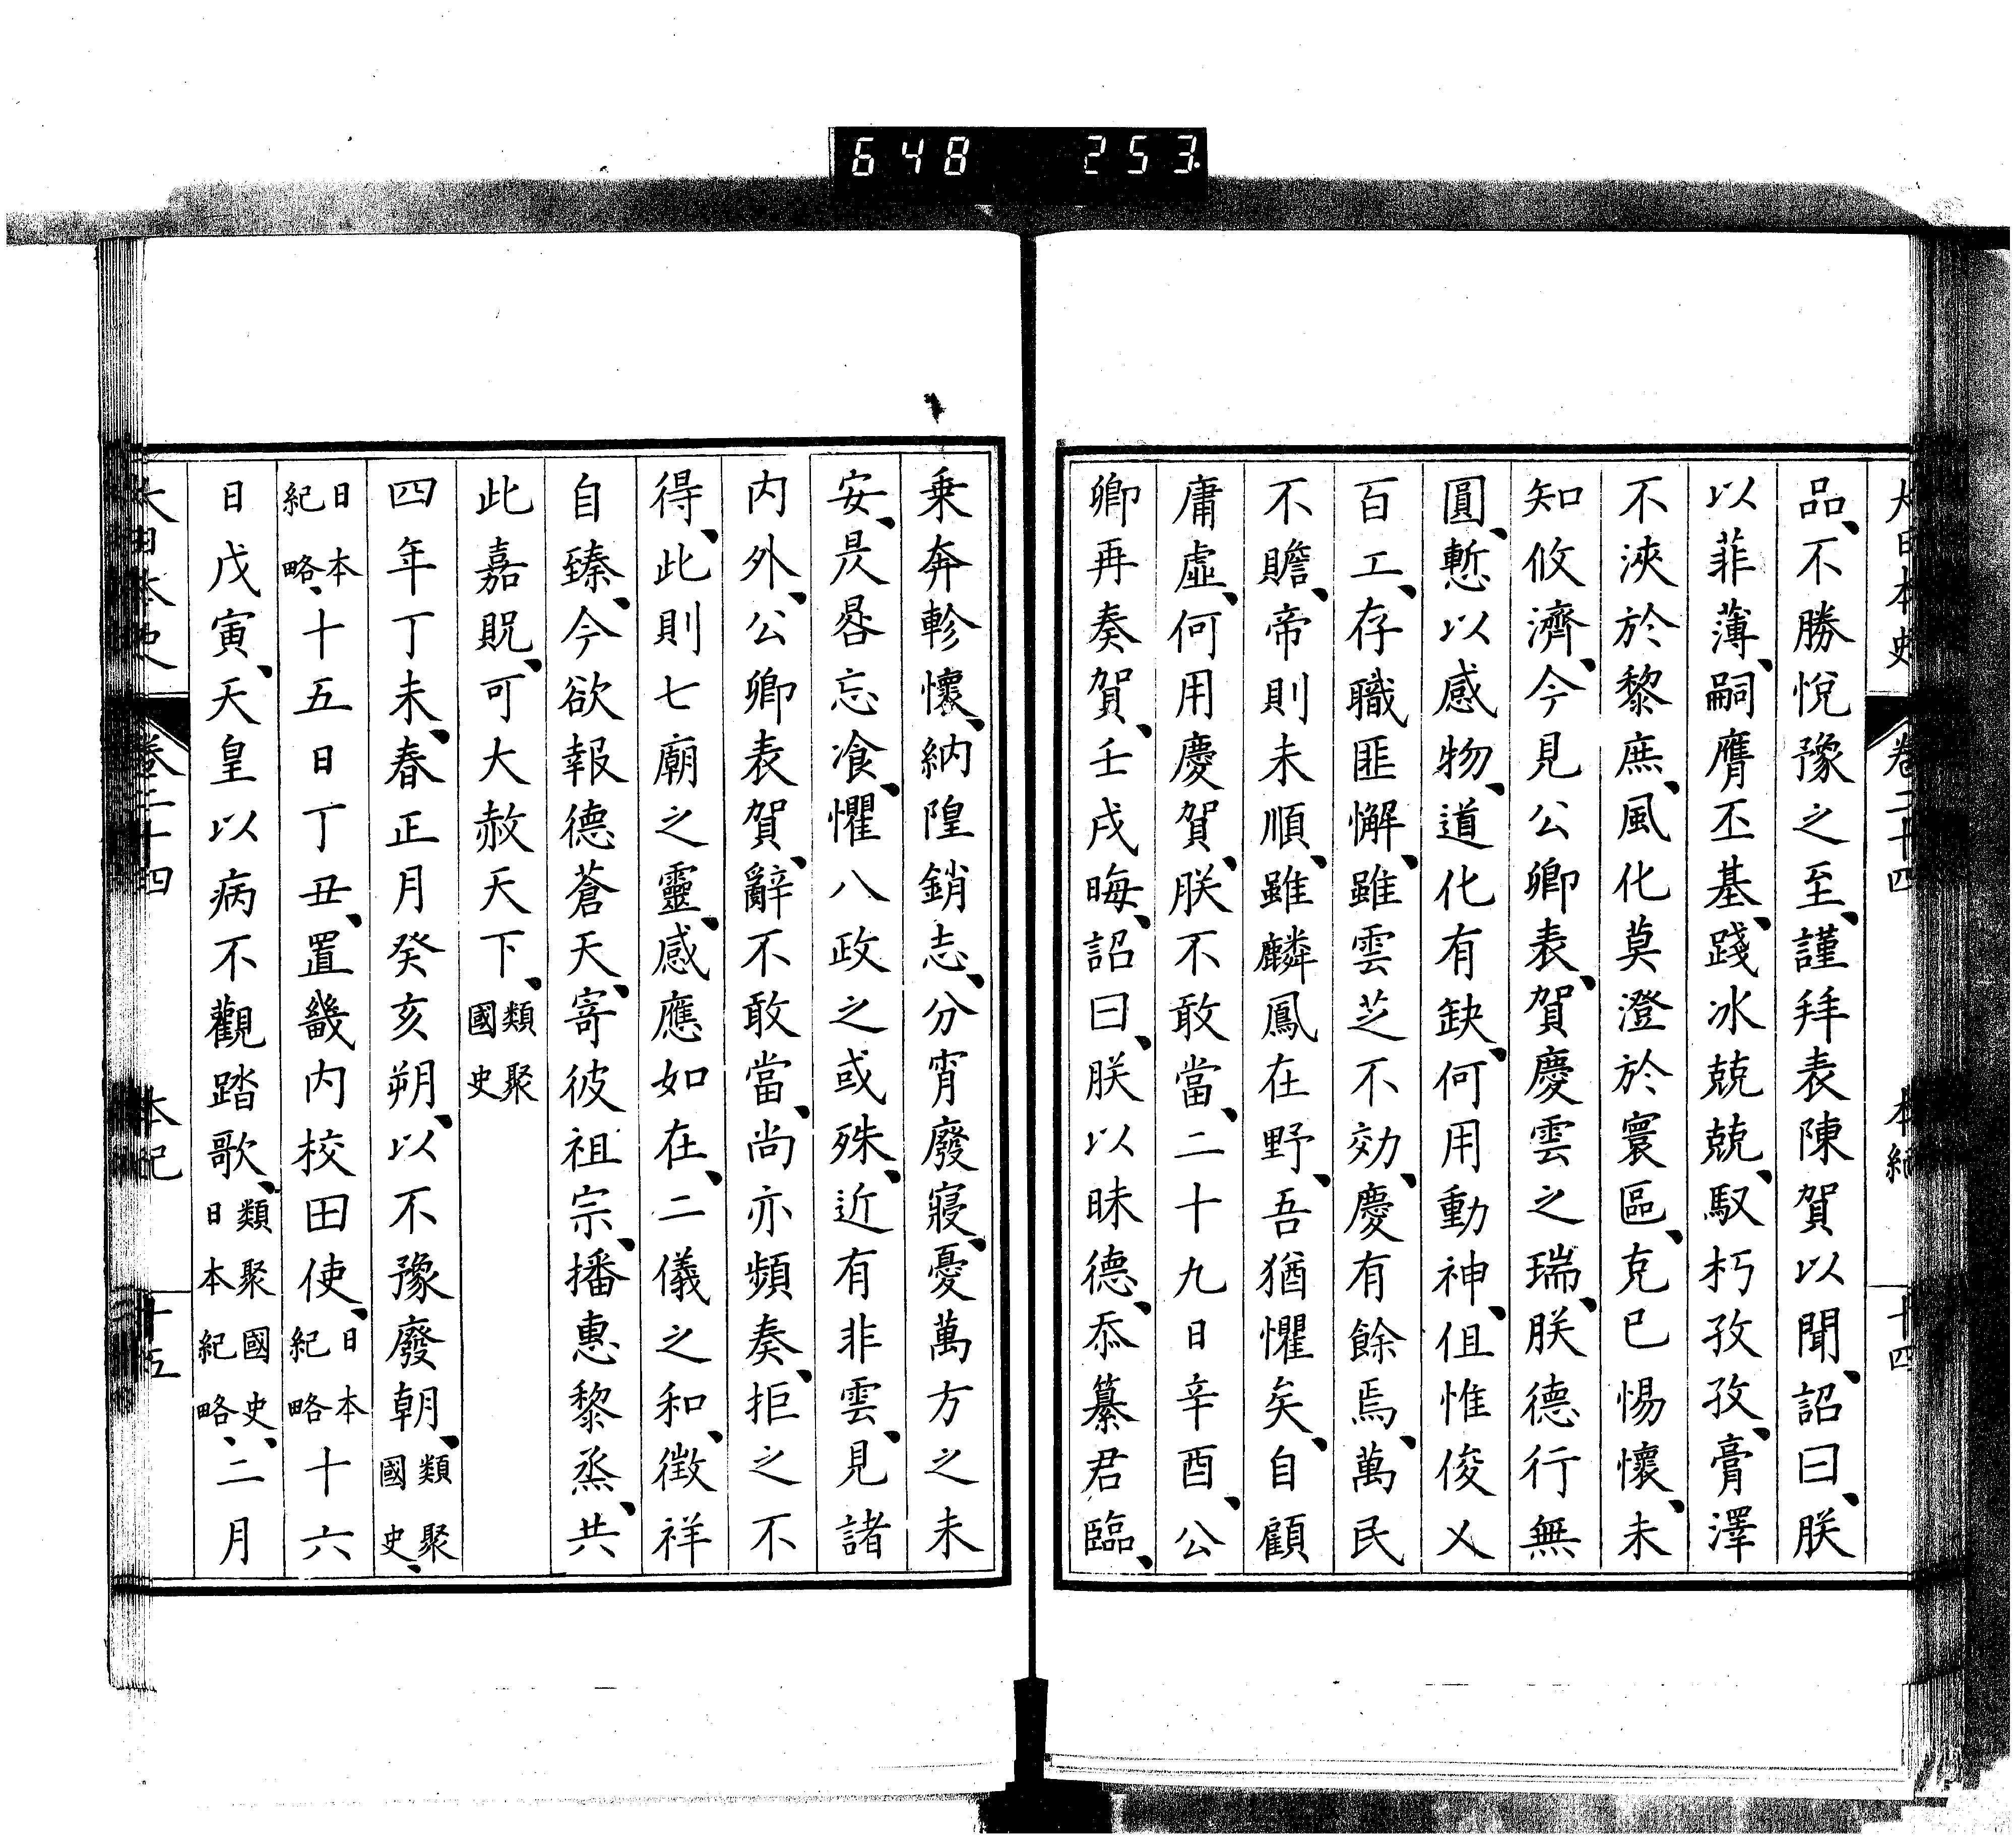 648 253
大日本史 卷二十四 本紀 十四
品、不勝悅豫之至、謹拜表陳賀以聞、詔曰、朕
以菲薄、嗣膺丕基、踐冰兢兢、馭朽孜孜、膏澤
不浹於黎庶、風化莫澄於寰區、克已惕懷、未
知攸濟、今見公卿表、賀慶雲之瑞、朕德行無
圓、慙以感物、道化有缺、何用動神、伹惟俊乂
百工、存職匪懈、雖雲芝不効、慶有餘焉、萬民
不贍、帝則未順、雖麟鳳在野、吾猶懼矣、自顧
庸虛、何用慶賀、朕不敢當、二十九日辛酉、公
卿再奏賀、壬戌晦、詔曰、朕以昧德、忝纂君臨、
乗奔軫懷、納隍銷志、分宵廢寢、憂萬方之未
安、昃晷忘飡、懼八政之或殊、近有非雲、見諸
内外、公卿表賀、辭不敢當、尚亦頻奏、拒之不
得、此則七廟之靈、感應如在、二儀之和、徴祥
自臻、今欲報德蒼天、寄彼祖宗、播惠黎烝、共
此嘉貺、可大赦天下、類聚國史
四年丁未、春正月癸亥朔、以不豫廢朝、類聚國史、
日本紀略、十五日丁丑、置畿内校田使、日本紀略十六
日戊寅、天皇以病不觀踏歌、類聚國史、日本紀略、二月
大日本史 卷二十四 本紀 十五